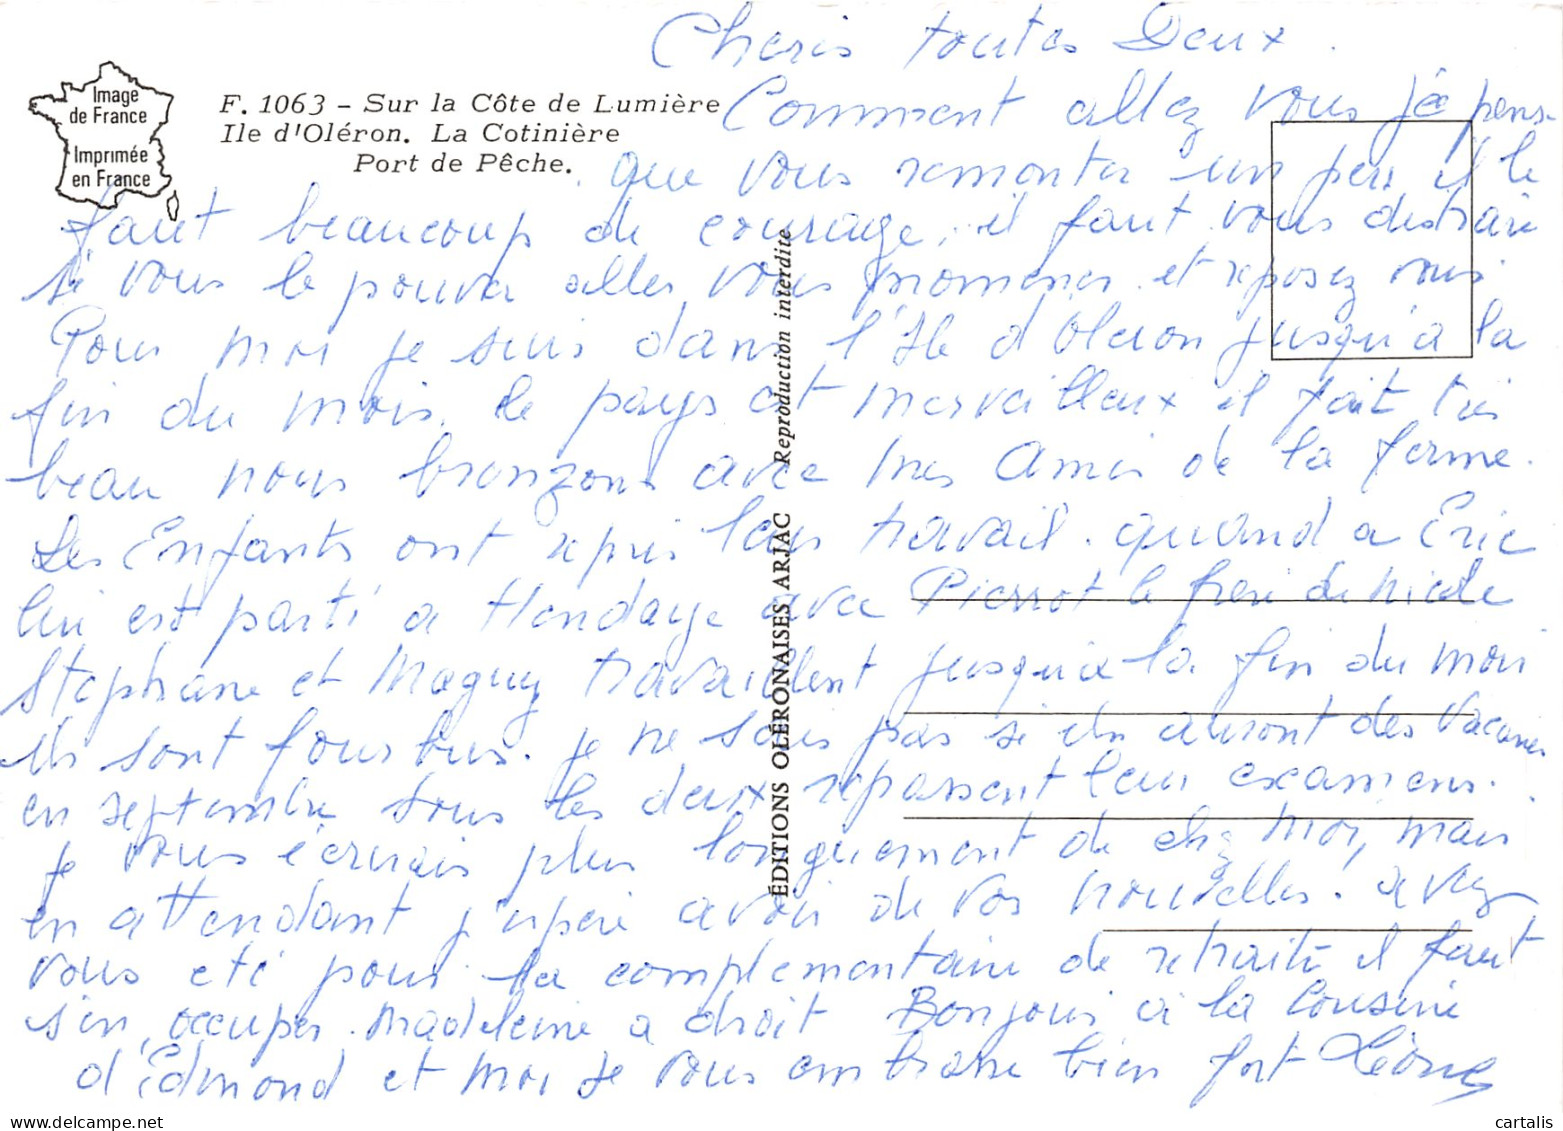 Cheris toutes Deux.
Image
de France
Imprimée
en France
F. 1063 - Sur la Côte de Lumière
Ile d'Oléron. La Cotinière
Port de Pêche.
Comment allez vous je pense
que vous remonter un peu il le
faut beaucoup de courage, il faut vous distraire
si vous le pouvez aller vous promener et reposez vous
Pour moi je suis dans l'Ile d'Oleron jusqu'a la
fin du mois. le pays est merveilleux il fait très
beau nous bronzons avec mes Amis de la ferme.
Les Enfants ont repris leur travail. quand a Eric
lui est parti a Hendaye avec Pierrot le frere de Nicole
Stephane et Maguy travaillent jusqu'a la fin du mois
ils sont fourbus. je ne sais pas si ils auront des vacances
en septembre tous les deux repassent leur examens.
je vous écrirais plus longuement de chez moi, mais
en attendant j'espere avoir de vos nouvelles. avez
vous eté pour la complementaire de retraite il faut
s'en occuper. Madeleine a droit Bonjour à la Cousine
d'Edmond et moi je vous embrasse bien fort Léone
ÉDITIONS OLÉRONAISES ARJAC Reproduction interdite
cartalis